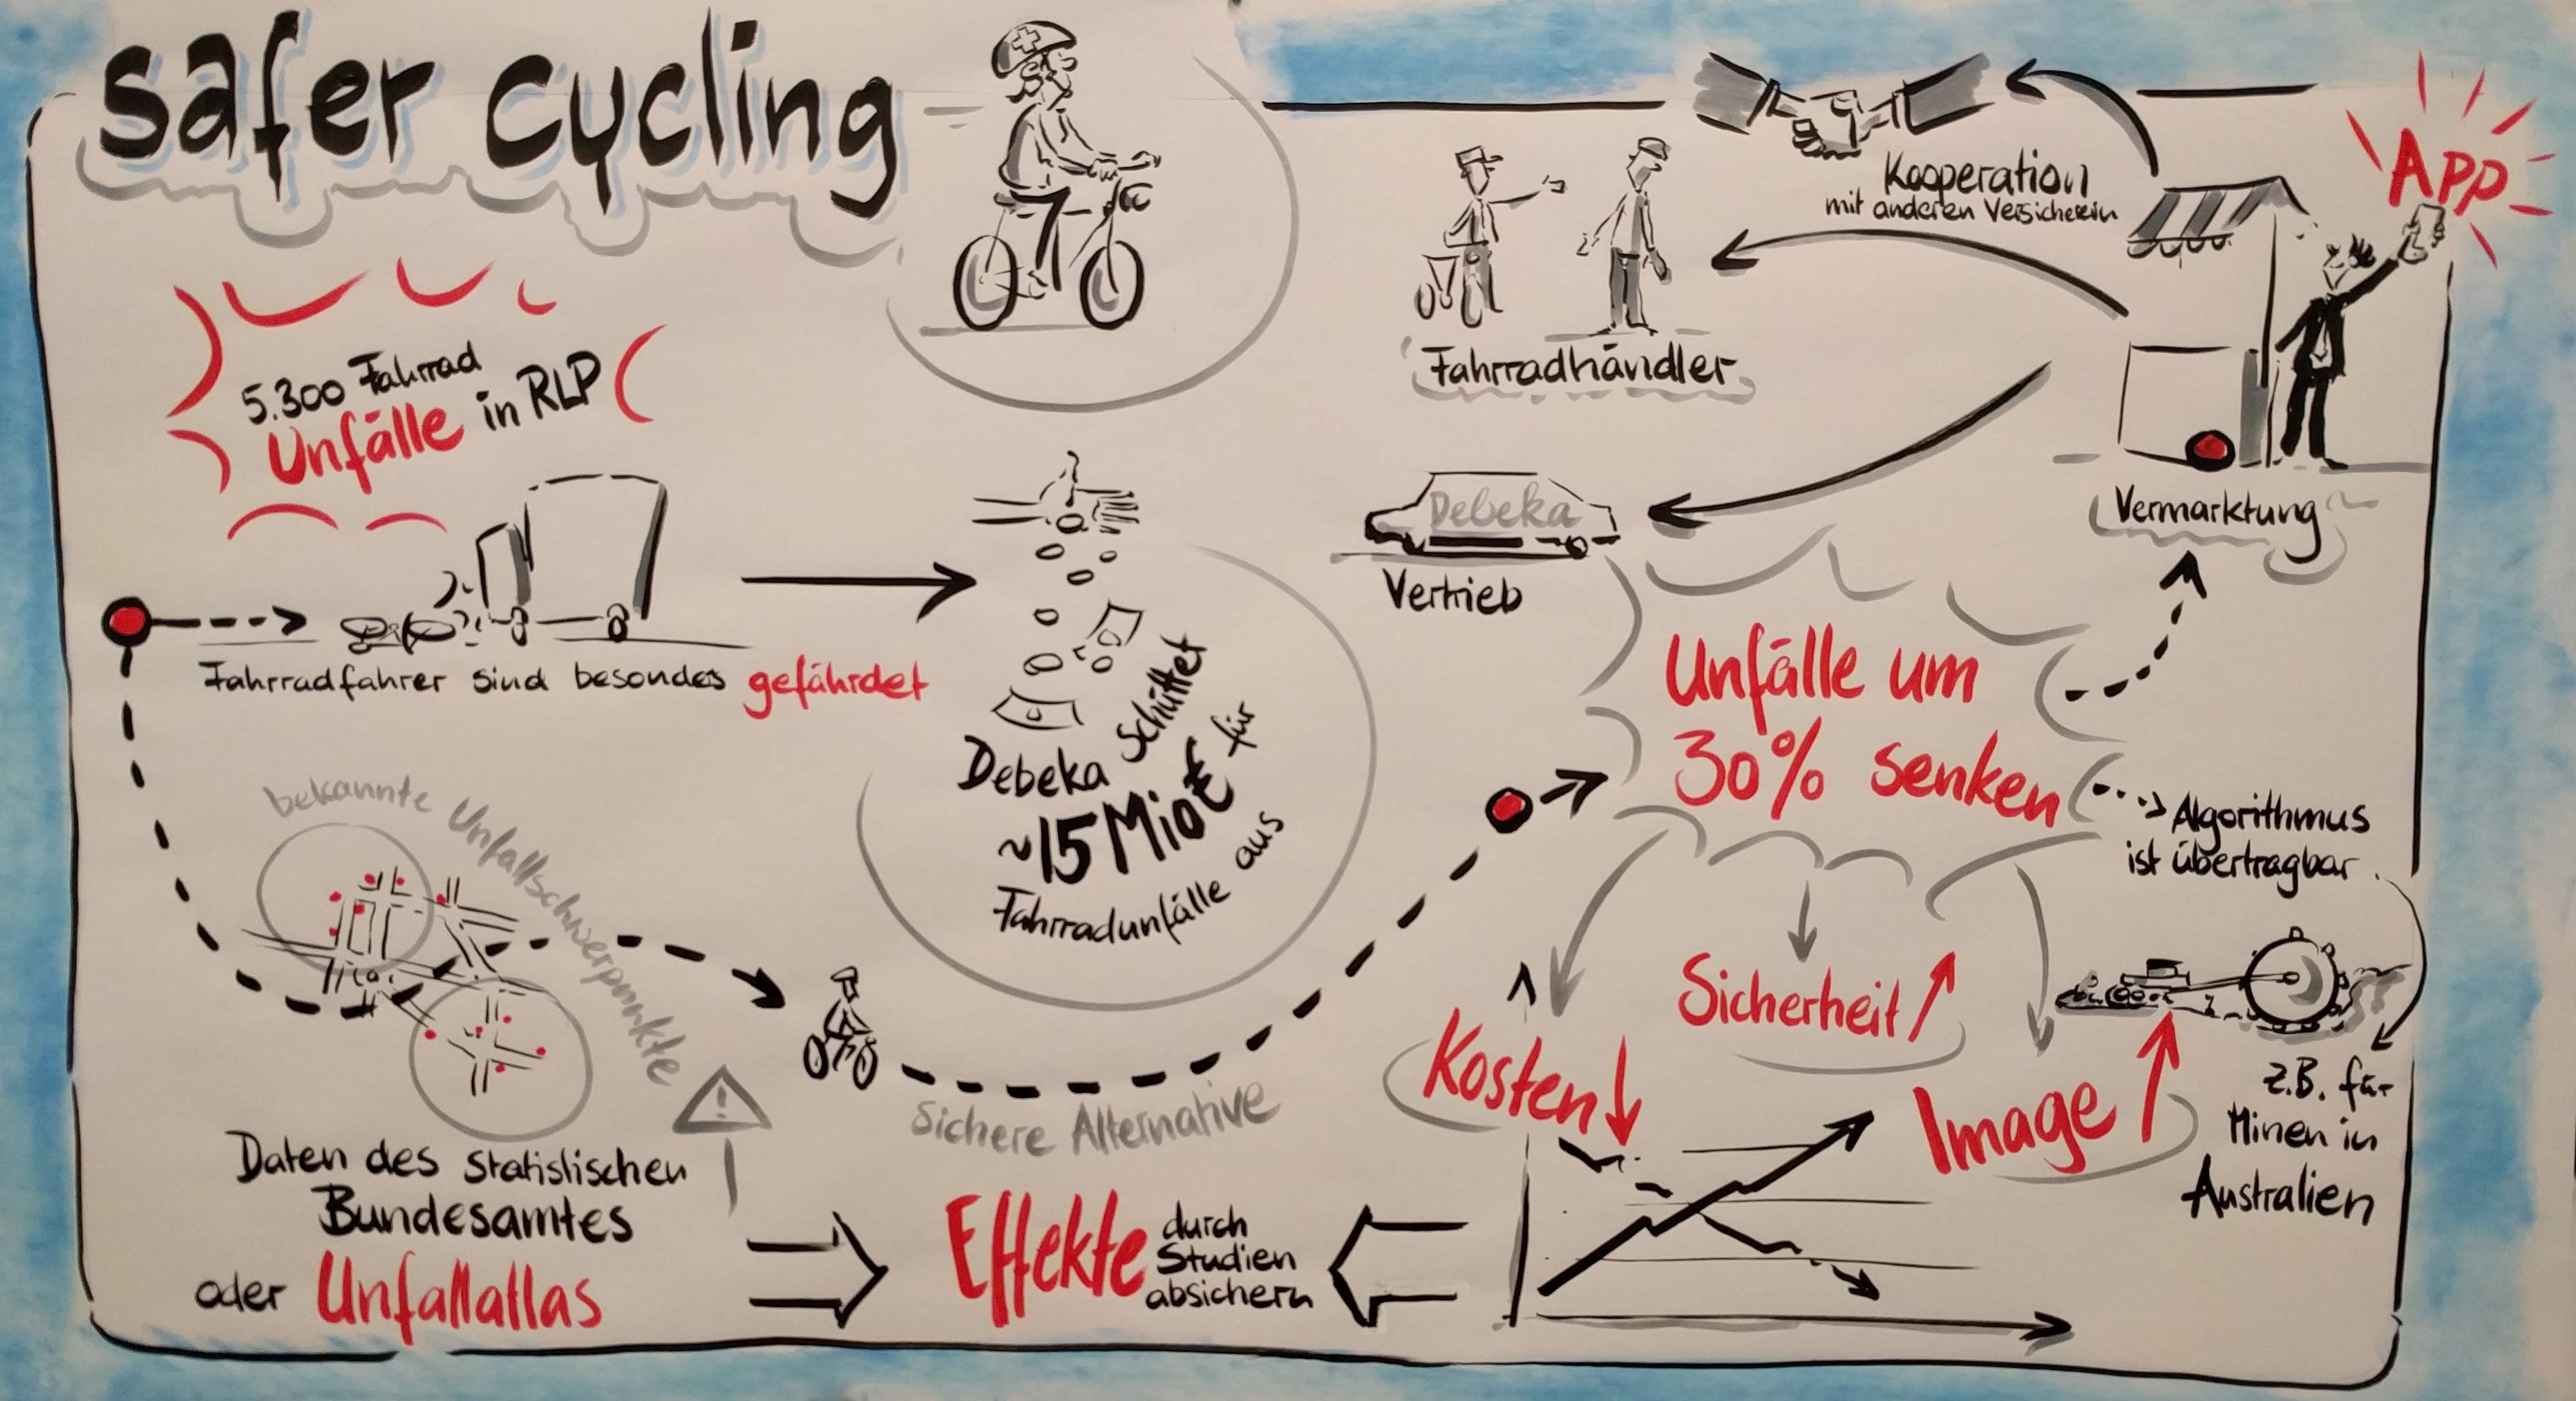 safer cycling
5.300 Fahrrad
Unfälle in RLP
Fahrradfahrer sind besondes gefährdet
Debeka schüttet
~15 Mio € für
Fahrradunfälle aus
bekannte Unfallschwerpunkte
!
Daten des statistischen
Bundesamtes
oder Unfallatlas
Sichere Alternative
Effekte durch
Studien
absichern
Kooperation
mit anderen Versicherern
App
Fahrradhändler
Debeka
Vertrieb
Vermarktung
Unfälle um
30% senken
Algorithmus
ist übertragbar
z.B. für
Minen in
Australien
Kosten
Sicherheit
Image